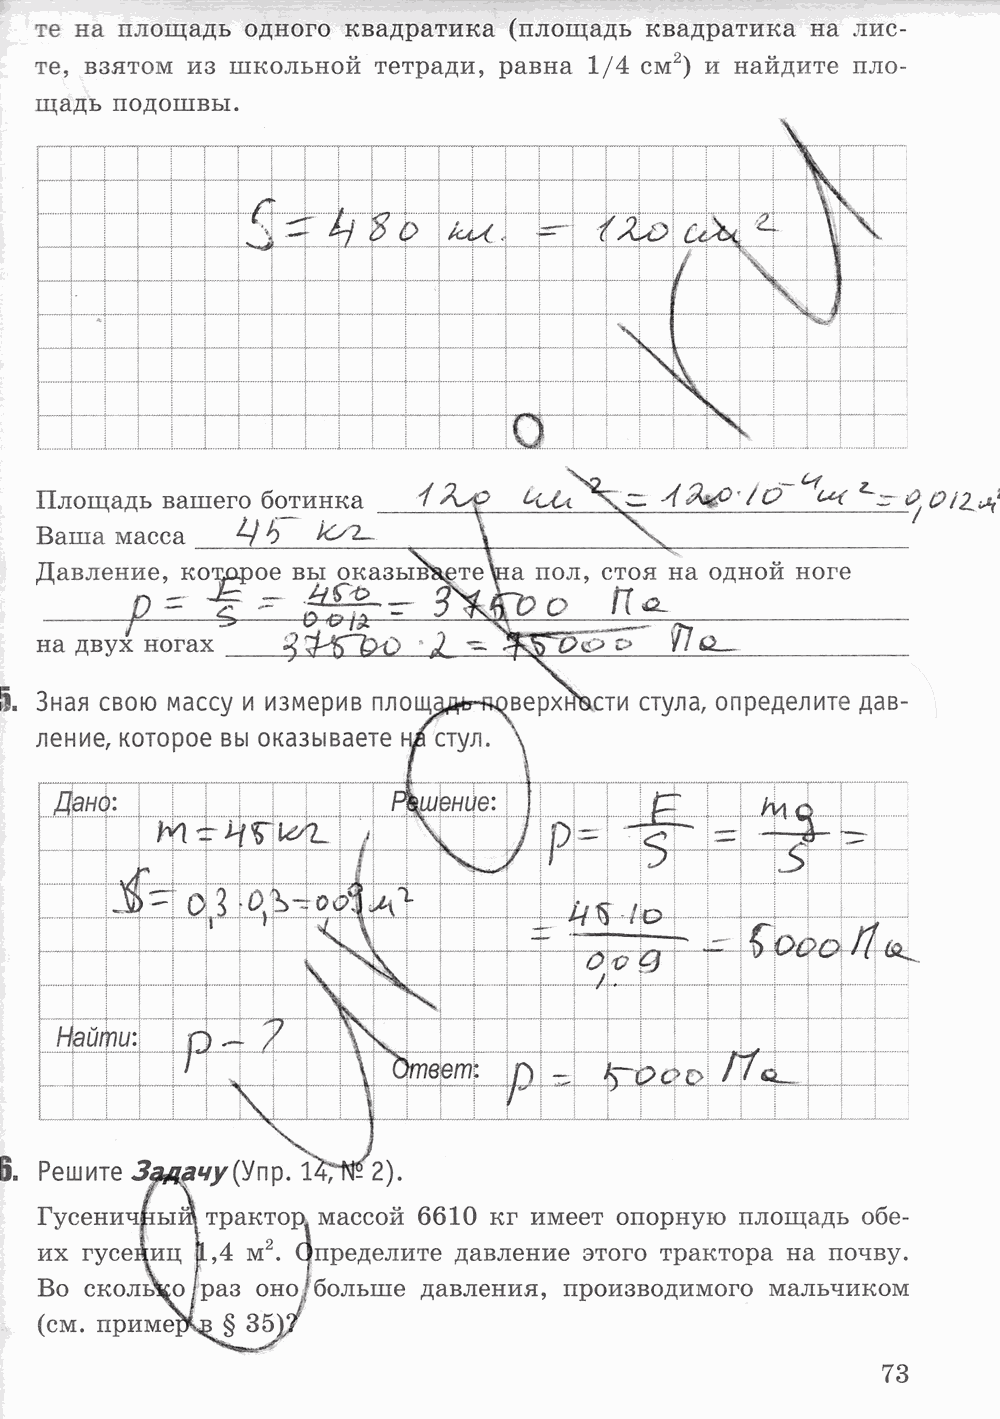 те на площадь одного квадратика (площадь квадратика на лис-
те, взятом из школьной тетради, равна 1/4 см²) и найдите пло-
щадь подошвы.
S = 480 кл. = 120 см²
Площадь вашего ботинка 120 см² = 120·10⁻⁴ м² = 0,012 м²
Ваша масса 45 кг
Давление, которое вы оказываете на пол, стоя на одной ноге
p = F/S = 450/0,012 = 37500 Па
на двух ногах 37500 · 2 = 75000 Па
5. Зная свою массу и измерив площадь поверхности стула, определите дав-
ление, которое вы оказываете на стул.
Дано:
m = 45 кг
S = 0,3 · 0,3 = 0,09 м²
Найти: p – ?
Решение:
p = F/S = mg/S =
= 45·10/0,09 = 5000 Па
Ответ: p = 5000 Па
6. Решите Задачу (Упр. 14, № 2).
Гусеничный трактор массой 6610 кг имеет опорную площадь обе-
их гусениц 1,4 м². Определите давление этого трактора на почву.
Во сколько раз оно больше давления, производимого мальчиком
(см. пример в § 35)?
73